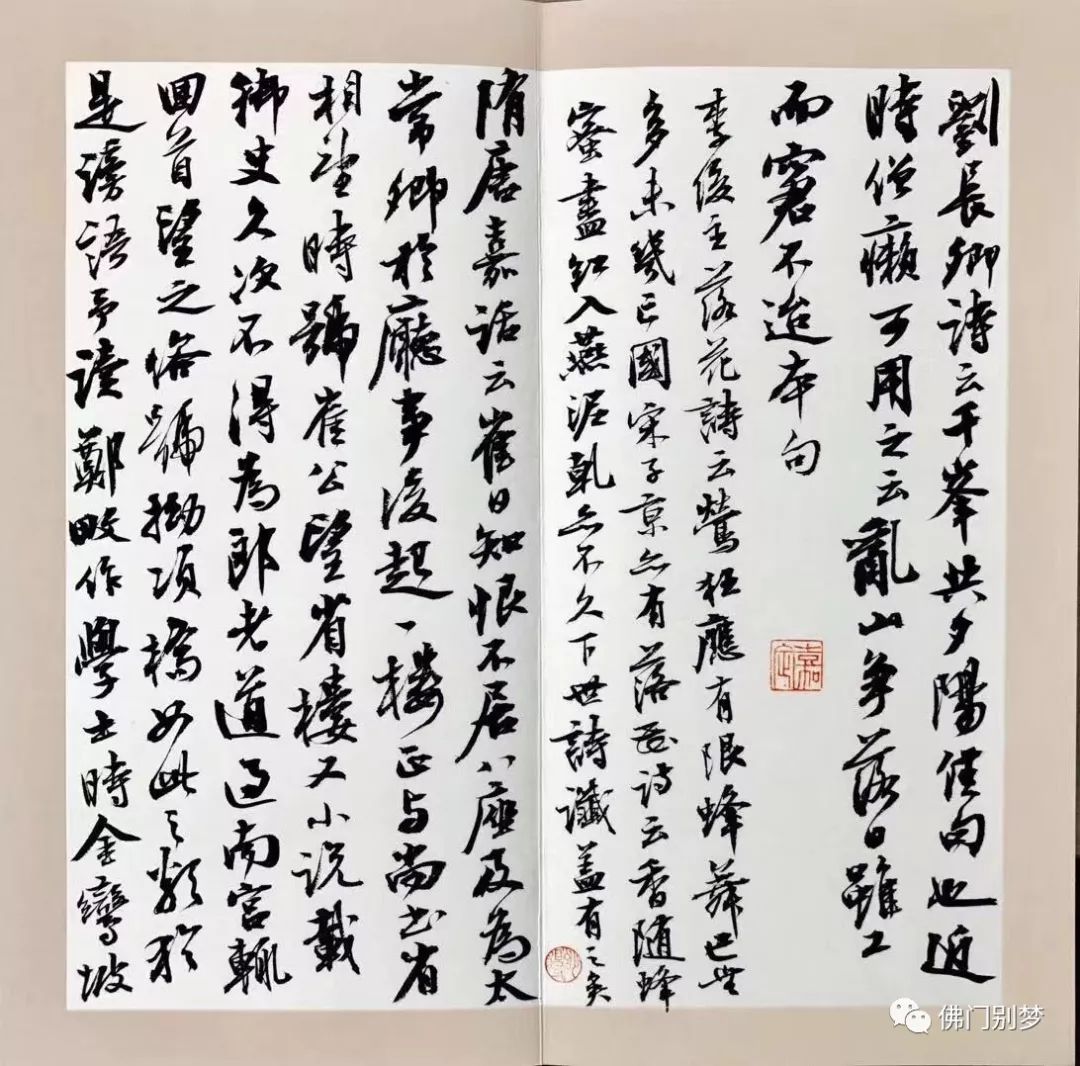 劉長卿詩云千峯共夕陽佳句也近
時僧癩可用之云亂山争落日雖工
而窘不迨本句
李後主落花詩云鶯狂應有限蜂舞已無
多未幾亡國宋子京亦有落花詩云香随蜂
蜜盡紅入燕泥乹亦不久下世詩讖盖有之矣
隋唐嘉话云崔日知恨不居八座及為太
常卿於廳事後起一楼正与尚书省
相望時號崔公望省樓又小说載
御史久次不得為郎者道過南宫輒
回首望之俗號拗項橋如此之類於
是謗語予读鄭畋作學士時金鑾坡
嘉定
佛门别梦